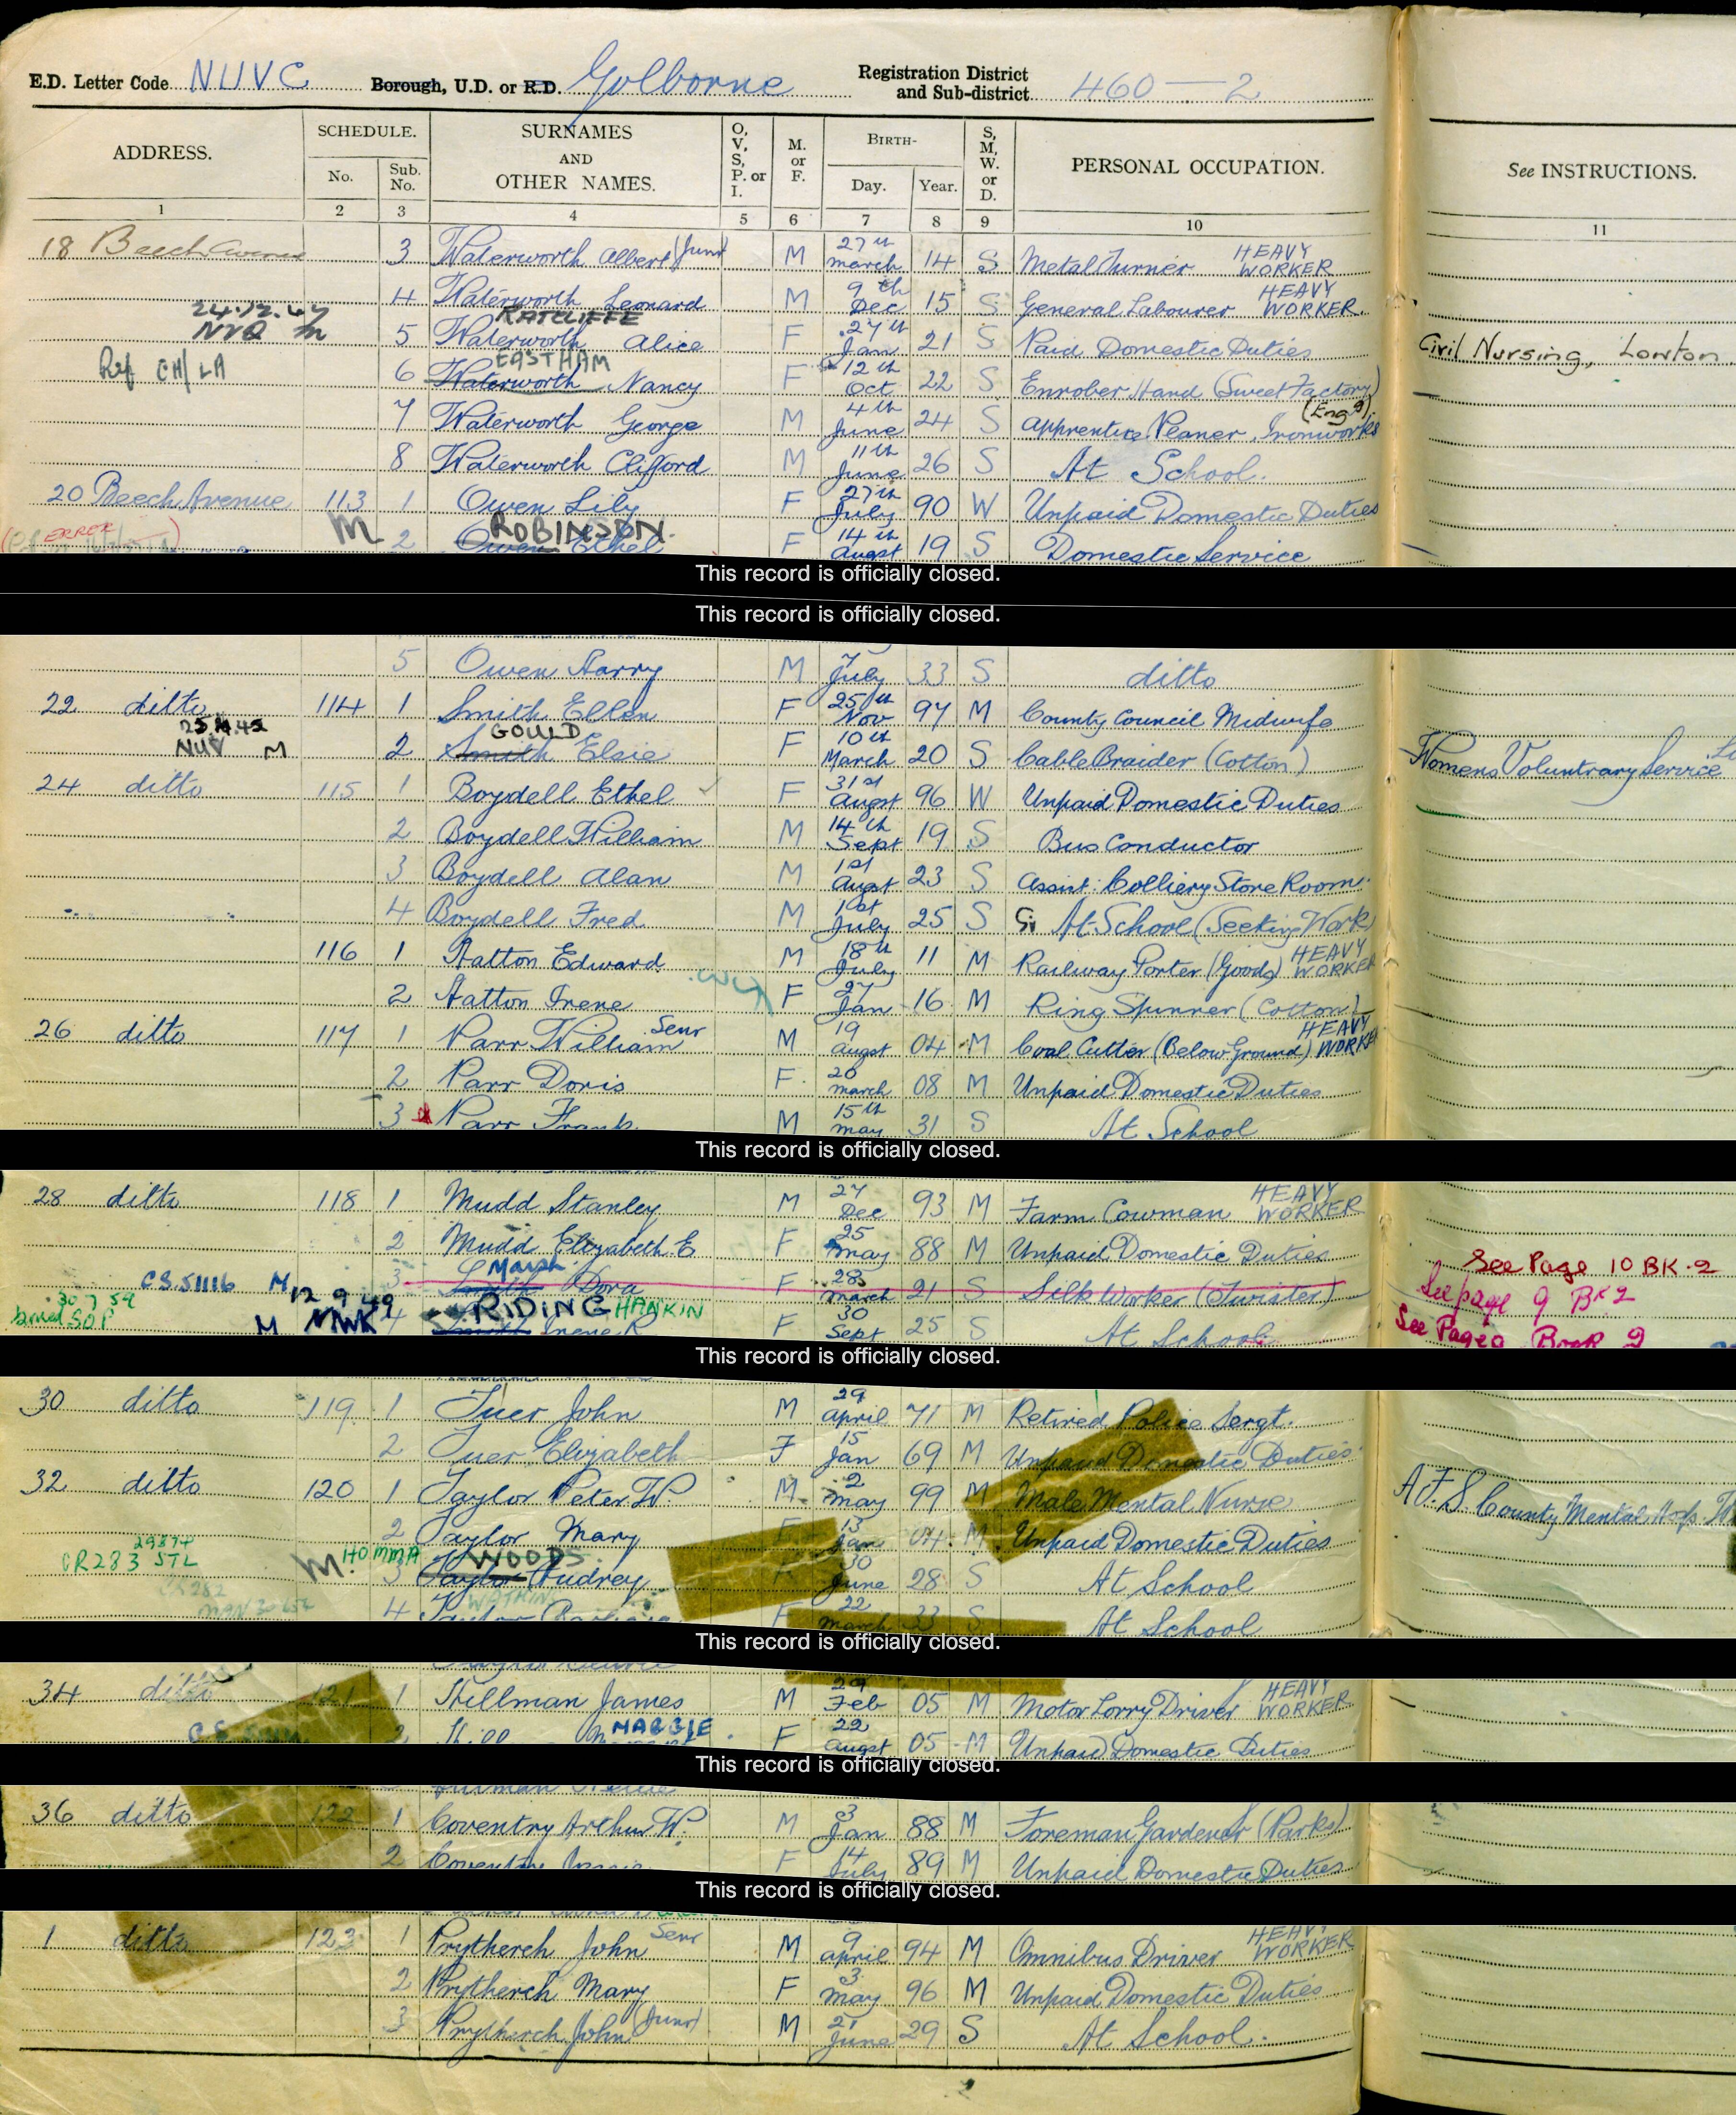 E.D. Letter Code NUVC Borough, U.D. or R.D. Golborne Registration District and Sub-district 460 — 2
ADDRESS. SCHEDULE. No. Sub. No. SURNAMES AND OTHER NAMES. O, V, S, P. or I. M. or F. BIRTH- Day. Year. S, M, W. or D. PERSONAL OCCUPATION. See INSTRUCTIONS.
1 2 3 4 5 6 7 8 9 10 11
18 Beech Avenue 3 Waterworth Albert (Junr) M 27th march 14 S Metal Turner HEAVY WORKER
4 Waterworth Leonard M 9th Dec 15 S General Labourer HEAVY WORKER
24.12.47 RATCLIFFE
M 5 Waterworth Alice F 27th Jan 21 S Paid Domestic Duties Civil Nursing, Lowton
Ref CH/LA EASTHAM
6 Waterworth Nancy F 12th Oct 22 S Enrober Hand (Sweet Factory)
7 Waterworth George M 4th June 24 S Apprentice Planer, Ironworks (Eng g)
8 Waterworth Clifford M 11th June 26 S At School.
20 Beech Avenue 113 1 Owen Lily F 27th July 90 W Unpaid Domestic Duties
ERRER M ROBINSON.
2 Owen Ethel F 14th Augst 19 S Domestic Service
This record is officially closed.
This record is officially closed.
5 Owen Harry M 7 July 33 S ditto
22 ditto 114 1 Smith Ellen F 25th Nov 97 M County Council Midwife
NUV M GOULD
2 Smith Elsie F 10th March 20 S Cable Braider (Cotton) Womens Voluntrary Service
24 ditto 115 1 Boydell Ethel F 31st Augst 96 W Unpaid Domestic Duties
2 Boydell William M 14th Sept 19 S Bus Conductor
3 Boydell Alan M 1st Augst 23 S Assist: Colliery Store Room.
4 Boydell Fred M 1st July 25 S At School (Seeking Work)
116 1 Hatton Edward M 18th July 11 M Railway Porter (Goods) HEAVY WORKER
2 Hatton Irene F 27 Jan 16 M Ring Spinner (Cotton)
26 ditto 117 1 Parr William Senr M 19 Augst 04 M Coal Cutter (Below Ground) HEAVY WORKER
2 Parr Doris F 20 march 08 M Unpaid Domestic Duties
3 Parr Frank M 15th May 31 S At School
This record is officially closed.
28 ditto 118 1 Mudd Stanley M 27 Dec 93 M Farm Cowman HEAVY WORKER
2 Mudd Elizabeth E F 25 May 88 M Unpaid Domestic Duties See Page 10 BK.2
CS.51116 M Marsh
3 Smith Dora F 28 March 21 S Silk Worker (Twister) See page 9 BK 2
30 7 59 M 12 9 49 RIDING HANKIN
4 Smith Irene R F 30 Sept 25 S At School See Page 9 Book 2
This record is officially closed.
30 ditto 119 1 Tuer John M 29 April 71 M Retired Police Sergt.
2 Tuer Elizabeth F 15 Jan 69 M Unpaid Domestic Duties
32 ditto 120 1 Taylor Peter W. M 2 May 99 M Male Mental Nurse A.F.S. County Mental Hosp.
2 Taylor Mary F 13 Jan 04 M Unpaid Domestic Duties
29874 CR283 STL M. WOODS
3 Taylor Audrey F 30 June 28 S At School
CR282 WATKIN
4 F 22 March 33 S At School
This record is officially closed.
34 ditto 121 1 Skillman James M 29 Feb 05 M Motor Lorry Driver HEAVY WORKER
2 MAGGIE F 22 Augst 05 M Unpaid Domestic Duties
This record is officially closed.
36 ditto 122 1 Coventry Arthur W. M 3 Jan 88 M Foreman Gardener (Parks)
2 Coventry F 14 July 89 M Unpaid Domestic Duties
This record is officially closed.
1 ditto 123 1 Prytherch John Senr M 9 April 94 M Omnibus Driver HEAVY WORKER
2 Prytherch Mary F 3 May 96 M Unpaid Domestic Duties
3 Prytherch John (Junr) M 21 June 29 S At School.